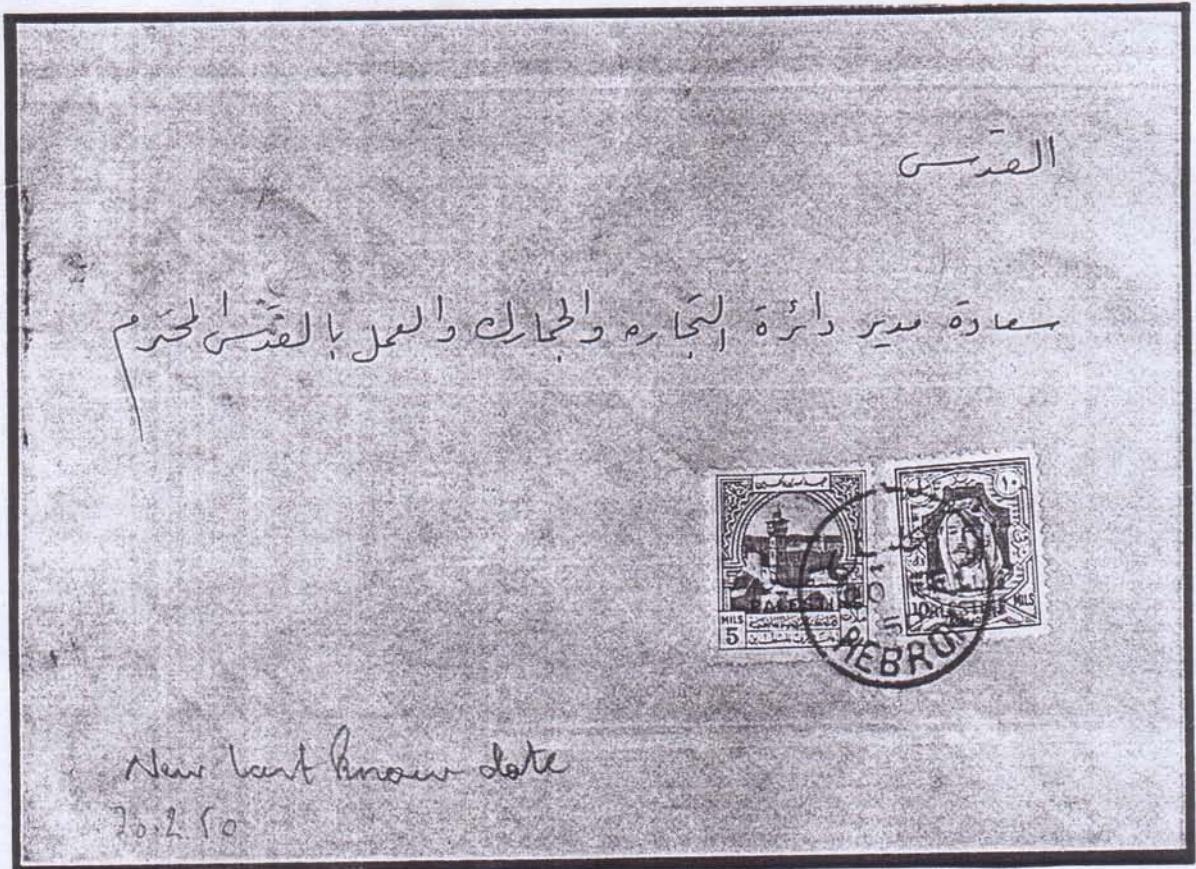 القدس
سعادة مدير دائرة التجاره والجمارك والعمل بالقدس المحترم
١٠
PALESTINE
MILS
5
MILS
10
HEBRON
New last know date
20.2.50